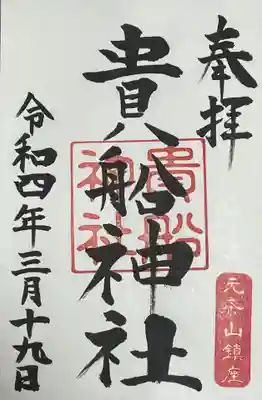 奉拝
貴船神社
貴船神社
元茶山鎮座
令和四年三月十九日